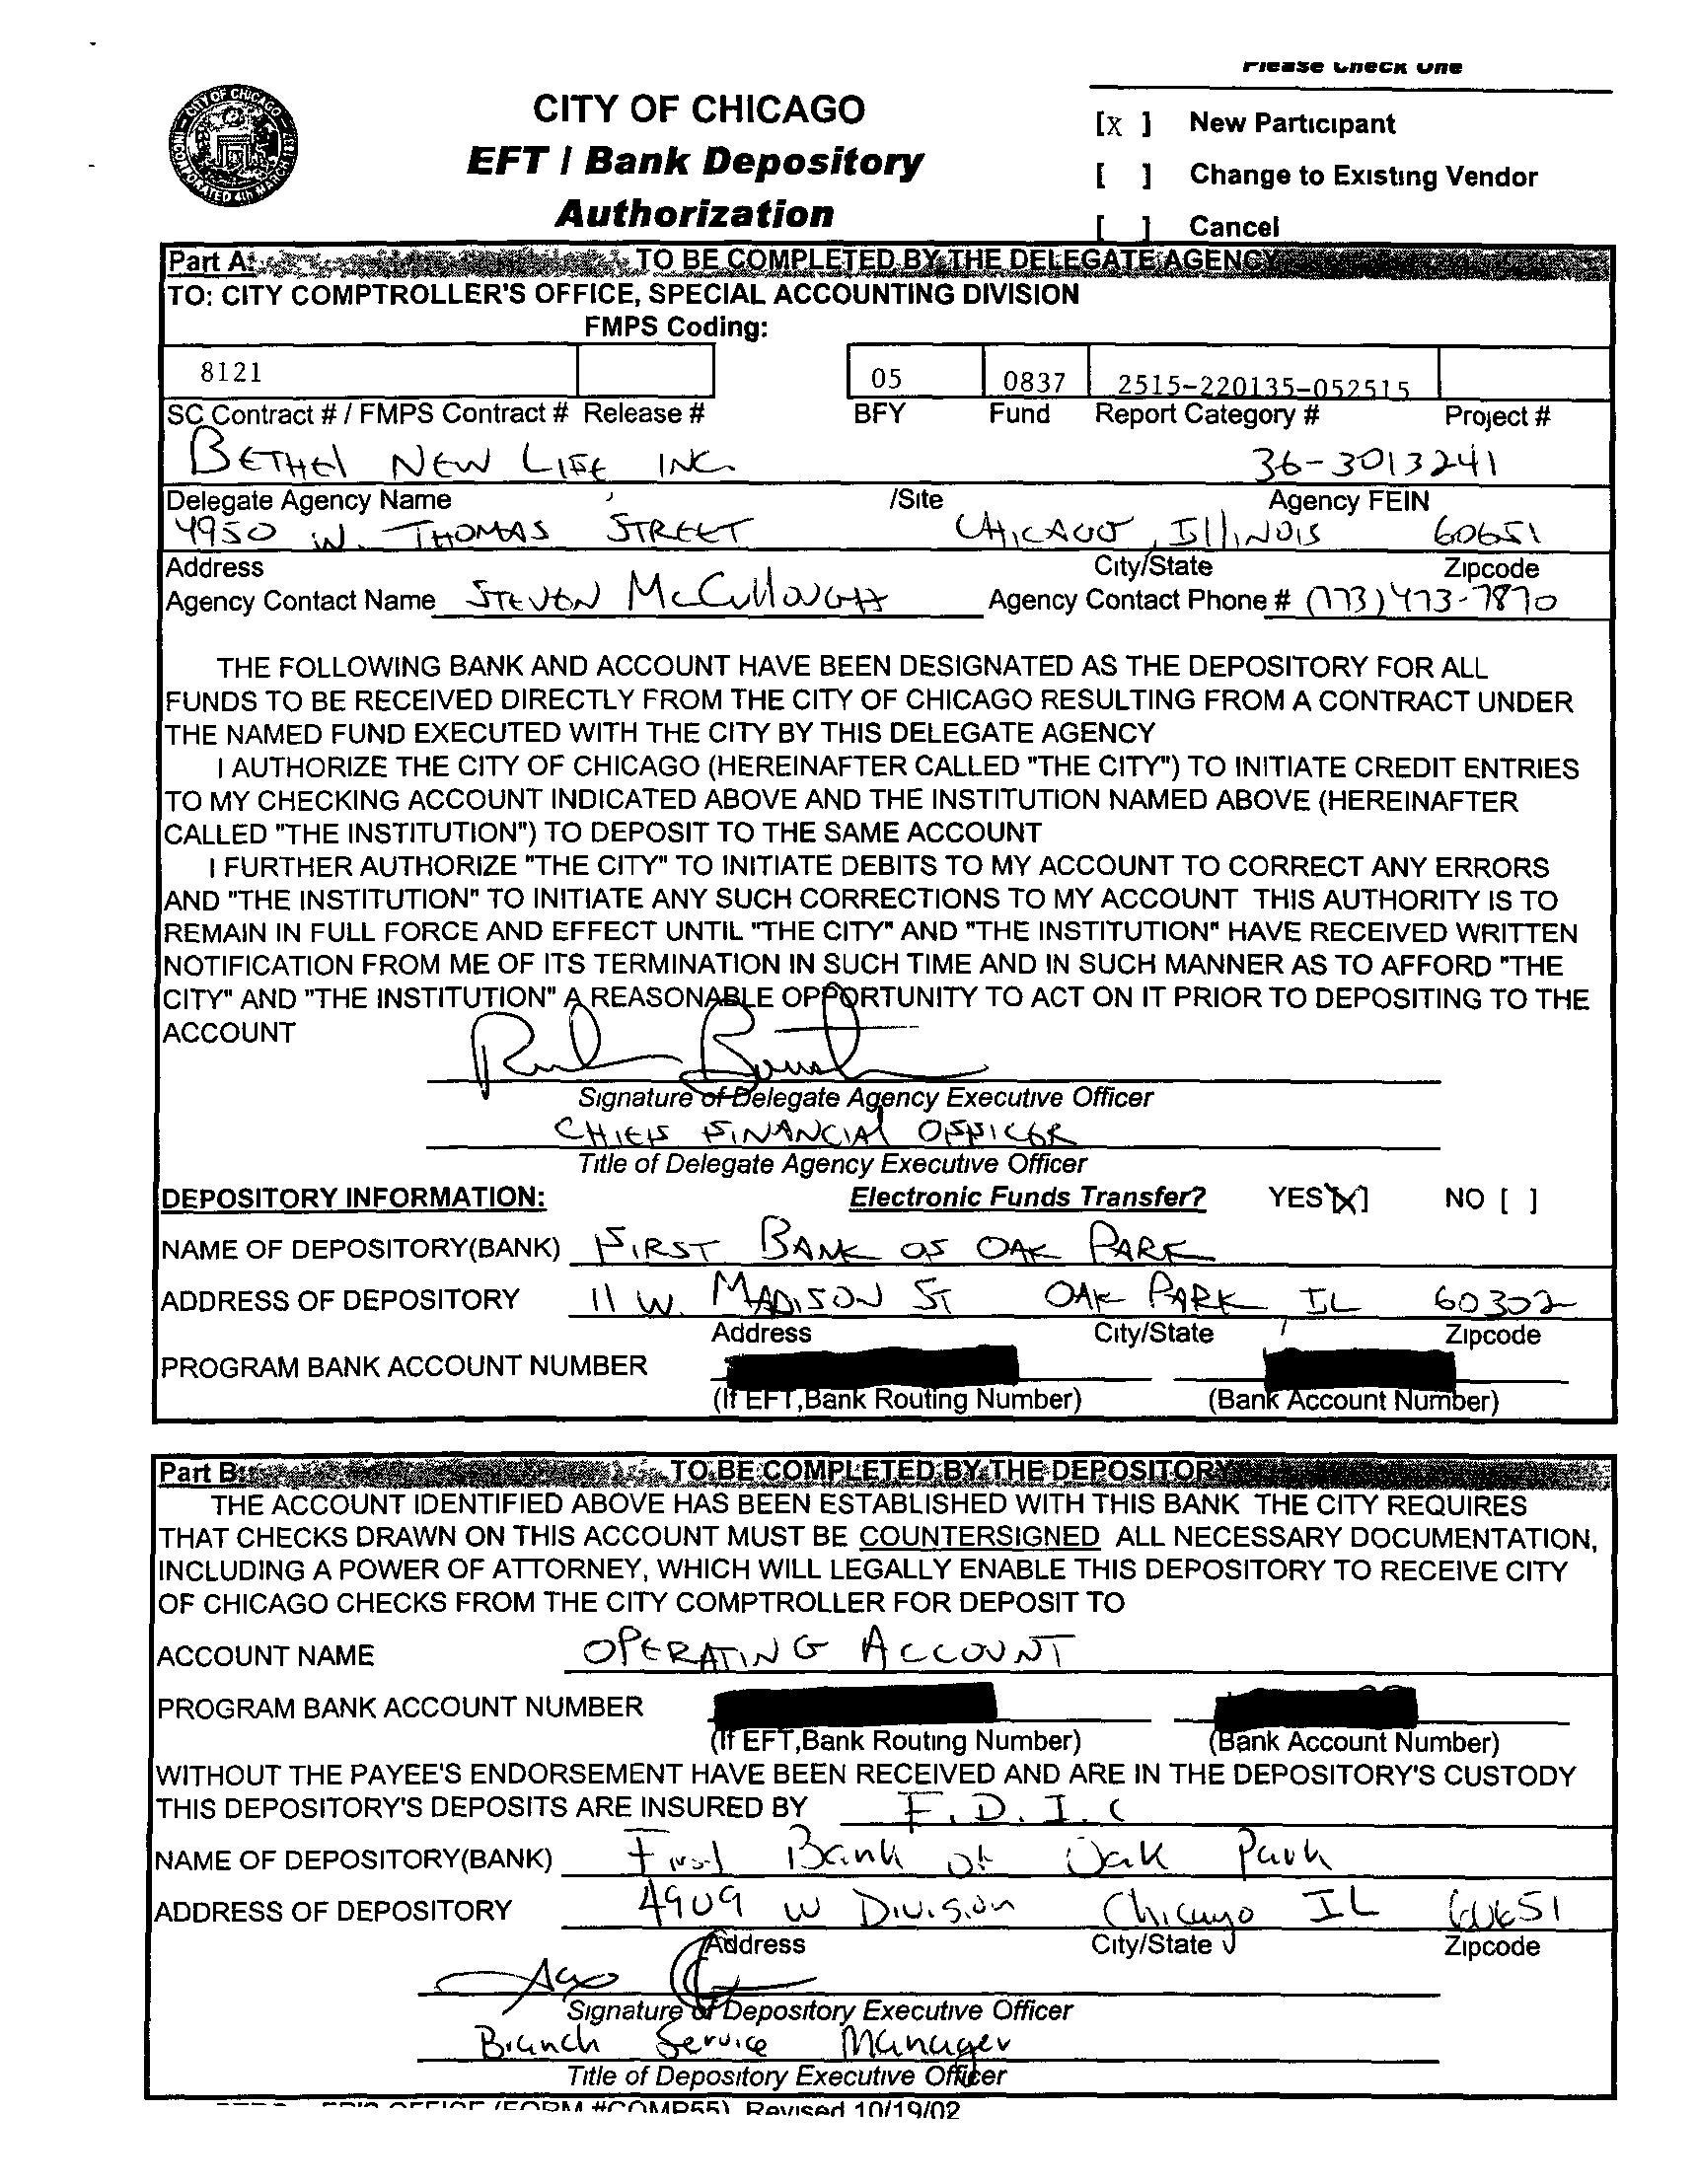 Please Check One
CITY OF CHICAGO
EFT / Bank Depository
Authorization
[X ] New Participant
[ ] Change to Existing Vendor
[ ] Cancel
CITY OF CHICAGO INCORPORATED 4th MARCH 1837
Part A: TO BE COMPLETED BY THE DELEGATE AGENCY
TO: CITY COMPTROLLER'S OFFICE, SPECIAL ACCOUNTING DIVISION
FMPS Coding:
8121 05 0837 2515-220135-052515
SC Contract # / FMPS Contract # Release # BFY Fund Report Category # Project #
BETHEL NEW LIFE INC. 36-3013241
Delegate Agency Name /Site Agency FEIN
4950 W. THOMAS STREET CHICAGO, ILLINOIS 60651
Address City/State Zipcode
Agency Contact Name STEVEN McCULLOUGH Agency Contact Phone # (773) 473-7870
THE FOLLOWING BANK AND ACCOUNT HAVE BEEN DESIGNATED AS THE DEPOSITORY FOR ALL
FUNDS TO BE RECEIVED DIRECTLY FROM THE CITY OF CHICAGO RESULTING FROM A CONTRACT UNDER
THE NAMED FUND EXECUTED WITH THE CITY BY THIS DELEGATE AGENCY
I AUTHORIZE THE CITY OF CHICAGO (HEREINAFTER CALLED "THE CITY") TO INITIATE CREDIT ENTRIES
TO MY CHECKING ACCOUNT INDICATED ABOVE AND THE INSTITUTION NAMED ABOVE (HEREINAFTER
CALLED "THE INSTITUTION") TO DEPOSIT TO THE SAME ACCOUNT
I FURTHER AUTHORIZE "THE CITY" TO INITIATE DEBITS TO MY ACCOUNT TO CORRECT ANY ERRORS
AND "THE INSTITUTION" TO INITIATE ANY SUCH CORRECTIONS TO MY ACCOUNT THIS AUTHORITY IS TO
REMAIN IN FULL FORCE AND EFFECT UNTIL "THE CITY" AND "THE INSTITUTION" HAVE RECEIVED WRITTEN
NOTIFICATION FROM ME OF ITS TERMINATION IN SUCH TIME AND IN SUCH MANNER AS TO AFFORD "THE
CITY" AND "THE INSTITUTION" A REASONABLE OPPORTUNITY TO ACT ON IT PRIOR TO DEPOSITING TO THE
ACCOUNT
Signature of Delegate Agency Executive Officer
CHIEF FINANCIAL OFFICER
Title of Delegate Agency Executive Officer
DEPOSITORY INFORMATION: Electronic Funds Transfer? YES [X] NO [ ]
NAME OF DEPOSITORY(BANK) FIRST BANK OF OAK PARK
ADDRESS OF DEPOSITORY 11 W. MADISON ST OAK PARK, IL 60302
Address City/State Zipcode
PROGRAM BANK ACCOUNT NUMBER
(If EFT,Bank Routing Number) (Bank Account Number)
Part B: TO BE COMPLETED BY THE DEPOSITORY
THE ACCOUNT IDENTIFIED ABOVE HAS BEEN ESTABLISHED WITH THIS BANK THE CITY REQUIRES
THAT CHECKS DRAWN ON THIS ACCOUNT MUST BE COUNTERSIGNED ALL NECESSARY DOCUMENTATION,
INCLUDING A POWER OF ATTORNEY, WHICH WILL LEGALLY ENABLE THIS DEPOSITORY TO RECEIVE CITY
OF CHICAGO CHECKS FROM THE CITY COMPTROLLER FOR DEPOSIT TO
ACCOUNT NAME OPERATING ACCOUNT
PROGRAM BANK ACCOUNT NUMBER
(If EFT,Bank Routing Number) (Bank Account Number)
WITHOUT THE PAYEE'S ENDORSEMENT HAVE BEEN RECEIVED AND ARE IN THE DEPOSITORY'S CUSTODY
THIS DEPOSITORY'S DEPOSITS ARE INSURED BY F.D.I.C
NAME OF DEPOSITORY(BANK) First Bank of Oak Park
ADDRESS OF DEPOSITORY 4909 W Division Chicago IL 60651
Address City/State Zipcode
Signature of Depository Executive Officer
Branch Service Manager
Title of Depository Executive Officer
OFFICE (FORM #COMP55) Revised 10/19/02